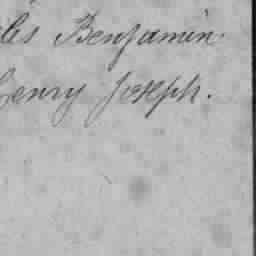 les Benjamin.
Henry Joseph.